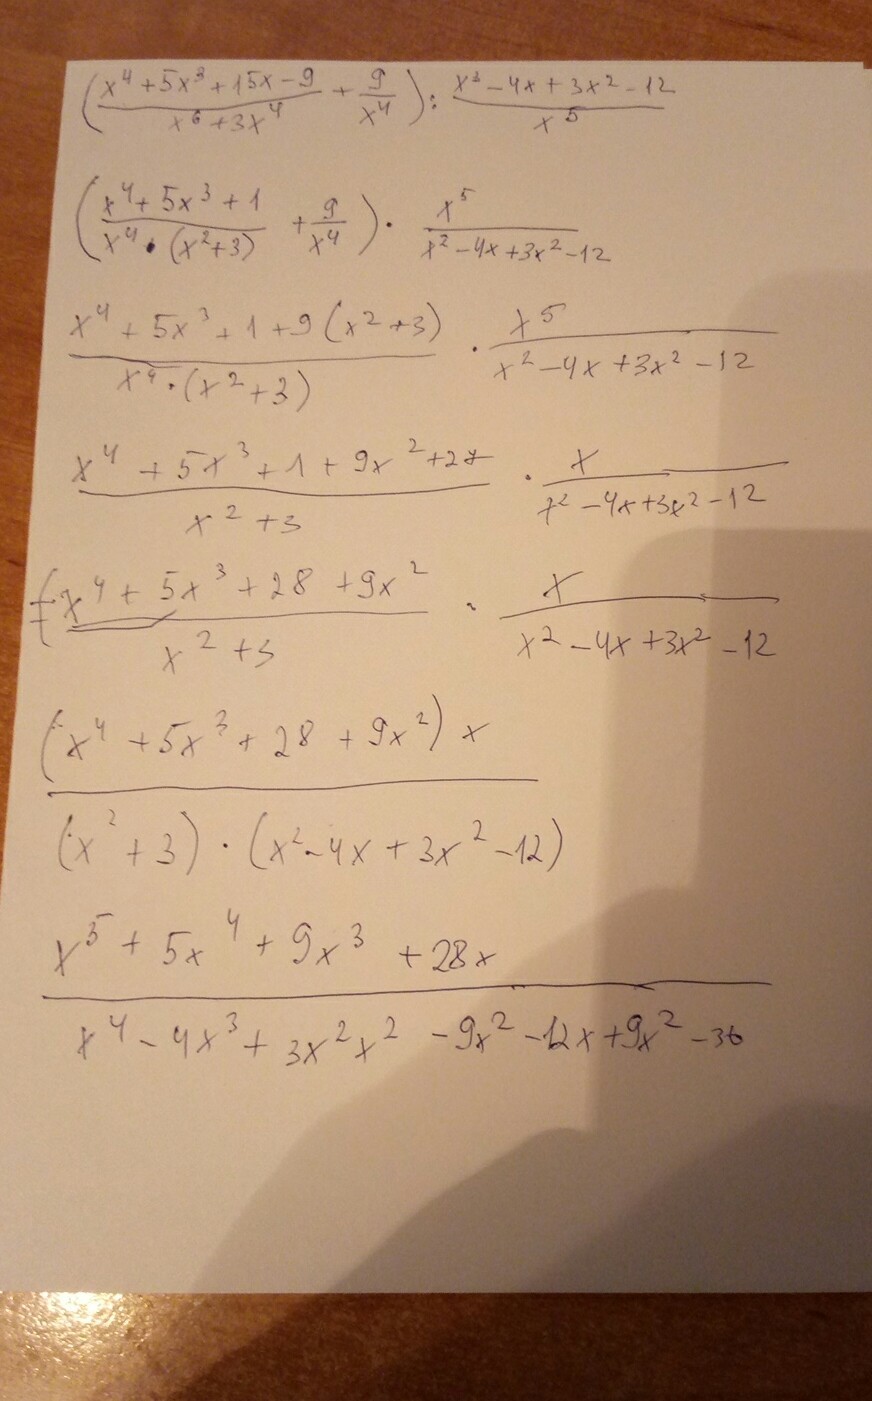 (x⁴ + 5x³ + 15x - 9 / x⁶ + 3x⁴ + 9 / x⁴) : x³ - 4x + 3x² - 12 / x⁵
(x⁴ + 5x³ + 1 / x⁴ · (x² + 3) + 9 / x⁴) · x⁵ / x² - 4x + 3x² - 12
x⁴ + 5x³ + 1 + 9(x² + 3) / x⁴ · (x² + 3) · x⁵ / x² - 4x + 3x² - 12
x⁴ + 5x³ + 1 + 9x² + 27 / x² + 3 · x / x² - 4x + 3x² - 12
x⁴ + 5x³ + 28 + 9x² / x² + 3 · x / x² - 4x + 3x² - 12
(x⁴ + 5x³ + 28 + 9x²) x / (x² + 3) · (x² - 4x + 3x² - 12)
x⁵ + 5x⁴ + 9x³ + 28x / x⁴ - 4x³ + 3x²x² - 9x² - 12x + 9x² - 36